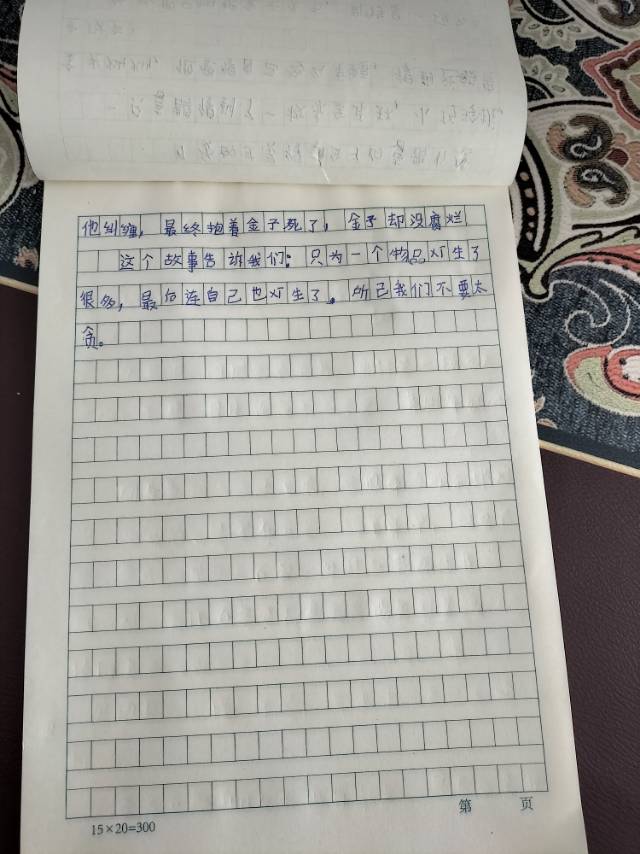 他纠缠，最终抱着金子死了，金子却没腐烂
这个故事告诉我们：只为一个物品生了
很多，最后连自己也生了。所已我们不要太
贪。
15×20=300
第 页